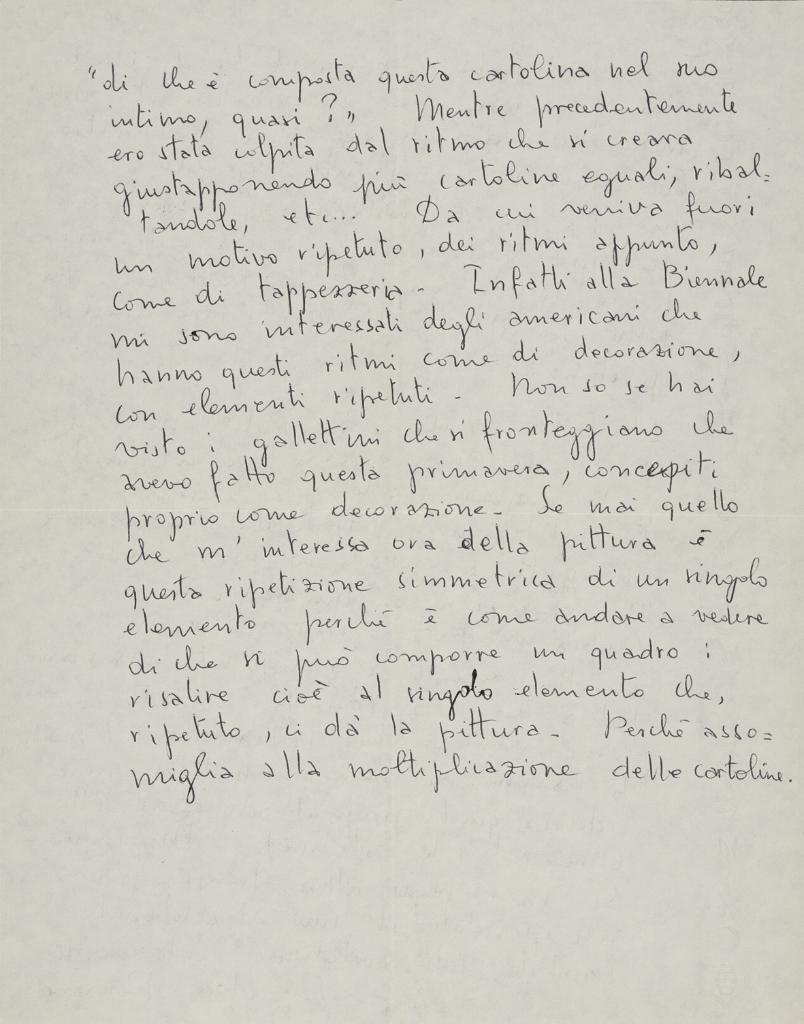 "di che è composta questa cartolina nel suo
intimo, quasi?" Mentre precedentemente
ero stata colpita dal ritmo che si creava
giustapponendo più cartoline eguali, ribal=
tandole, etc... Da cui veniva fuori
un motivo ripetuto, dei ritmi appunto,
come di tappezzeria. Infatti alla Biennale
mi sono interessati degli americani che
hanno questi ritmi come di decorazione,
con elementi ripetuti. Non so se hai
visto i gallettini che si fronteggiano che
avevo fatto questa primavera, concepiti
proprio come decorazione. Se mai quello
che m'interessa ora della pittura è
questa ripetizione simmetrica di un singolo
elemento perchè è come andare a vedere
di che si può comporre un quadro:
risalire cioè al singolo elemento che,
ripetuto, ci dà la pittura. Perchè asso=
miglia alla moltiplicazione delle cartoline.